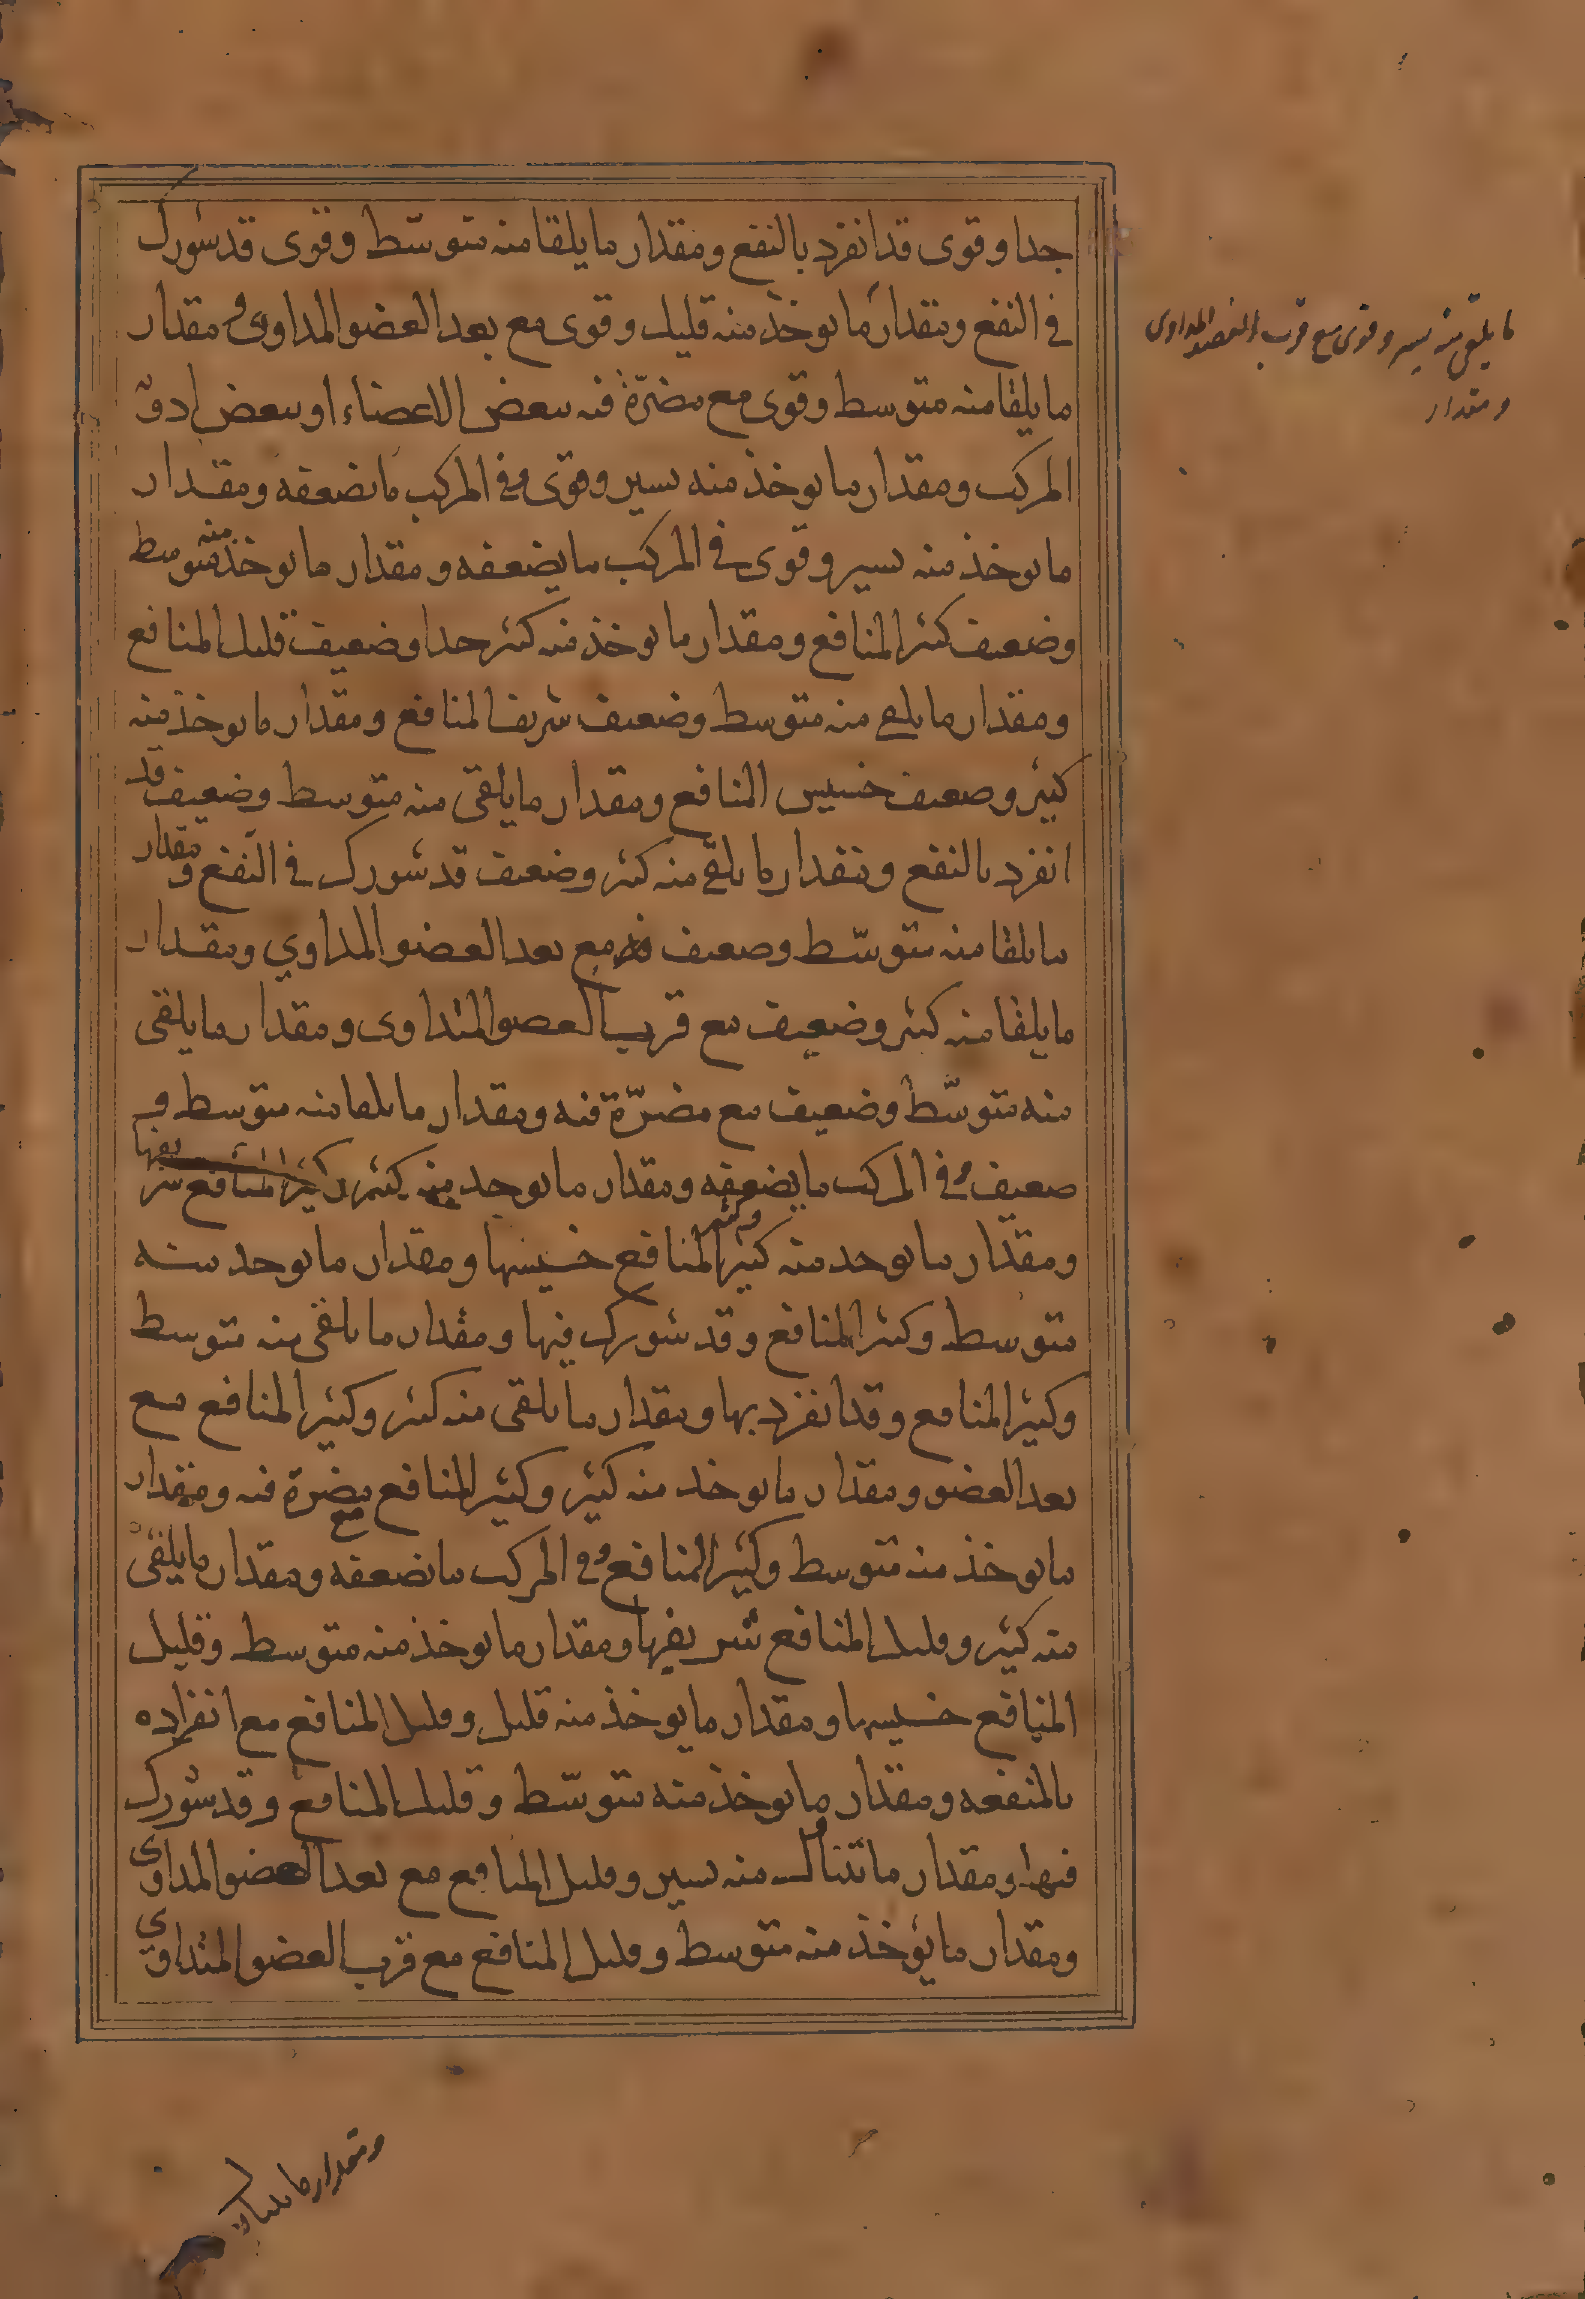 جدا وقوى قد انفرد بالنفع ومقدار ما يلقا منه متوسّط وقوى قد شورك
في النفع ومقدار ما يوخذ منه قليل وقوى مع بعد العضو المداوى ومقدار
ما يلقا منه متوسط وقوى مع مضرّة فيه ببعض الاعضاء او ببعض ادوية
المركب ومقدار ما يوخذ منه يسير وقوى وفي المركب ما يضعفه ومقدار
ما يوخذ منه يسير وقوى في المركب ما يضعفه ومقدار ما يوخذ منه متوسط
وضعيف كثير المنافع ومقدار ما يوخذ منه كثير جدا وضعيف قليل المنافع
ومقدار ما يلقى منه متوسط وضعيف شريف المنافع ومقدار ما يوخذ منه
كثير وضعيف خسيس المنافع ومقدار ما يلقى منه متوسط وضعيف قد
انفرد بالنفع ومقدار ما يلقى منه كثير وضعيف قد شورك في النفع ومقدار
ما يلقا منه متوسّط وضعيف مع بعد العضو المداوي ومقدار
ما يلقا منه كثير وضعيف مع قرب العضو المتداوى ومقدار ما يلقى
منه متوسّط وضعيف مع مضرّة فيه ومقدار ما يلقا منه متوسط و
ضعيف وفي المركب ما يضعفه ومقدار ما يوجد منه كثير وكثير المنافع شريفها
ومقدار ما يوخد منه كثير وكثير المنافع خسيسها ومقدار ما يوخد منه
متوسط وكثير المنافع وقد شورك فيها ومقدار ما يلقى منه متوسط
وكثير المنافع وقد انفرد بها ومقدار ما يلقى منه كثير وكثير المنافع مع
بعد العضو ومقدار ما يوخد منه كثير وكثير المنافع مع مضرة فيه ومقدار
ما يوخذ منه متوسط وكثير المنافع وفي المركب ما يضعفه ومقدار ما يلقى
منه كثير وقليل المنافع شريفها ومقدار ما يوخذ منه متوسط وقليل
المنافع خسيسها ومقدار ما يوخذ منه قليل وقليل المنافع مع انفراده
بالمنفعه ومقدار ما يوخذ منه متوسّط وقليل المنافع وقد شورك
فيها ومقدار ما يتناول منه يسير وقليل المنافع مع بعد العضو المداوى
ومقدار ما يؤخذ منه متوسط وقليل المنافع مع قرب العضو المتداوى
ما يلقى منه يسير وقوى مع قرب العضو المداوى
ومقدار
ومقدار ما